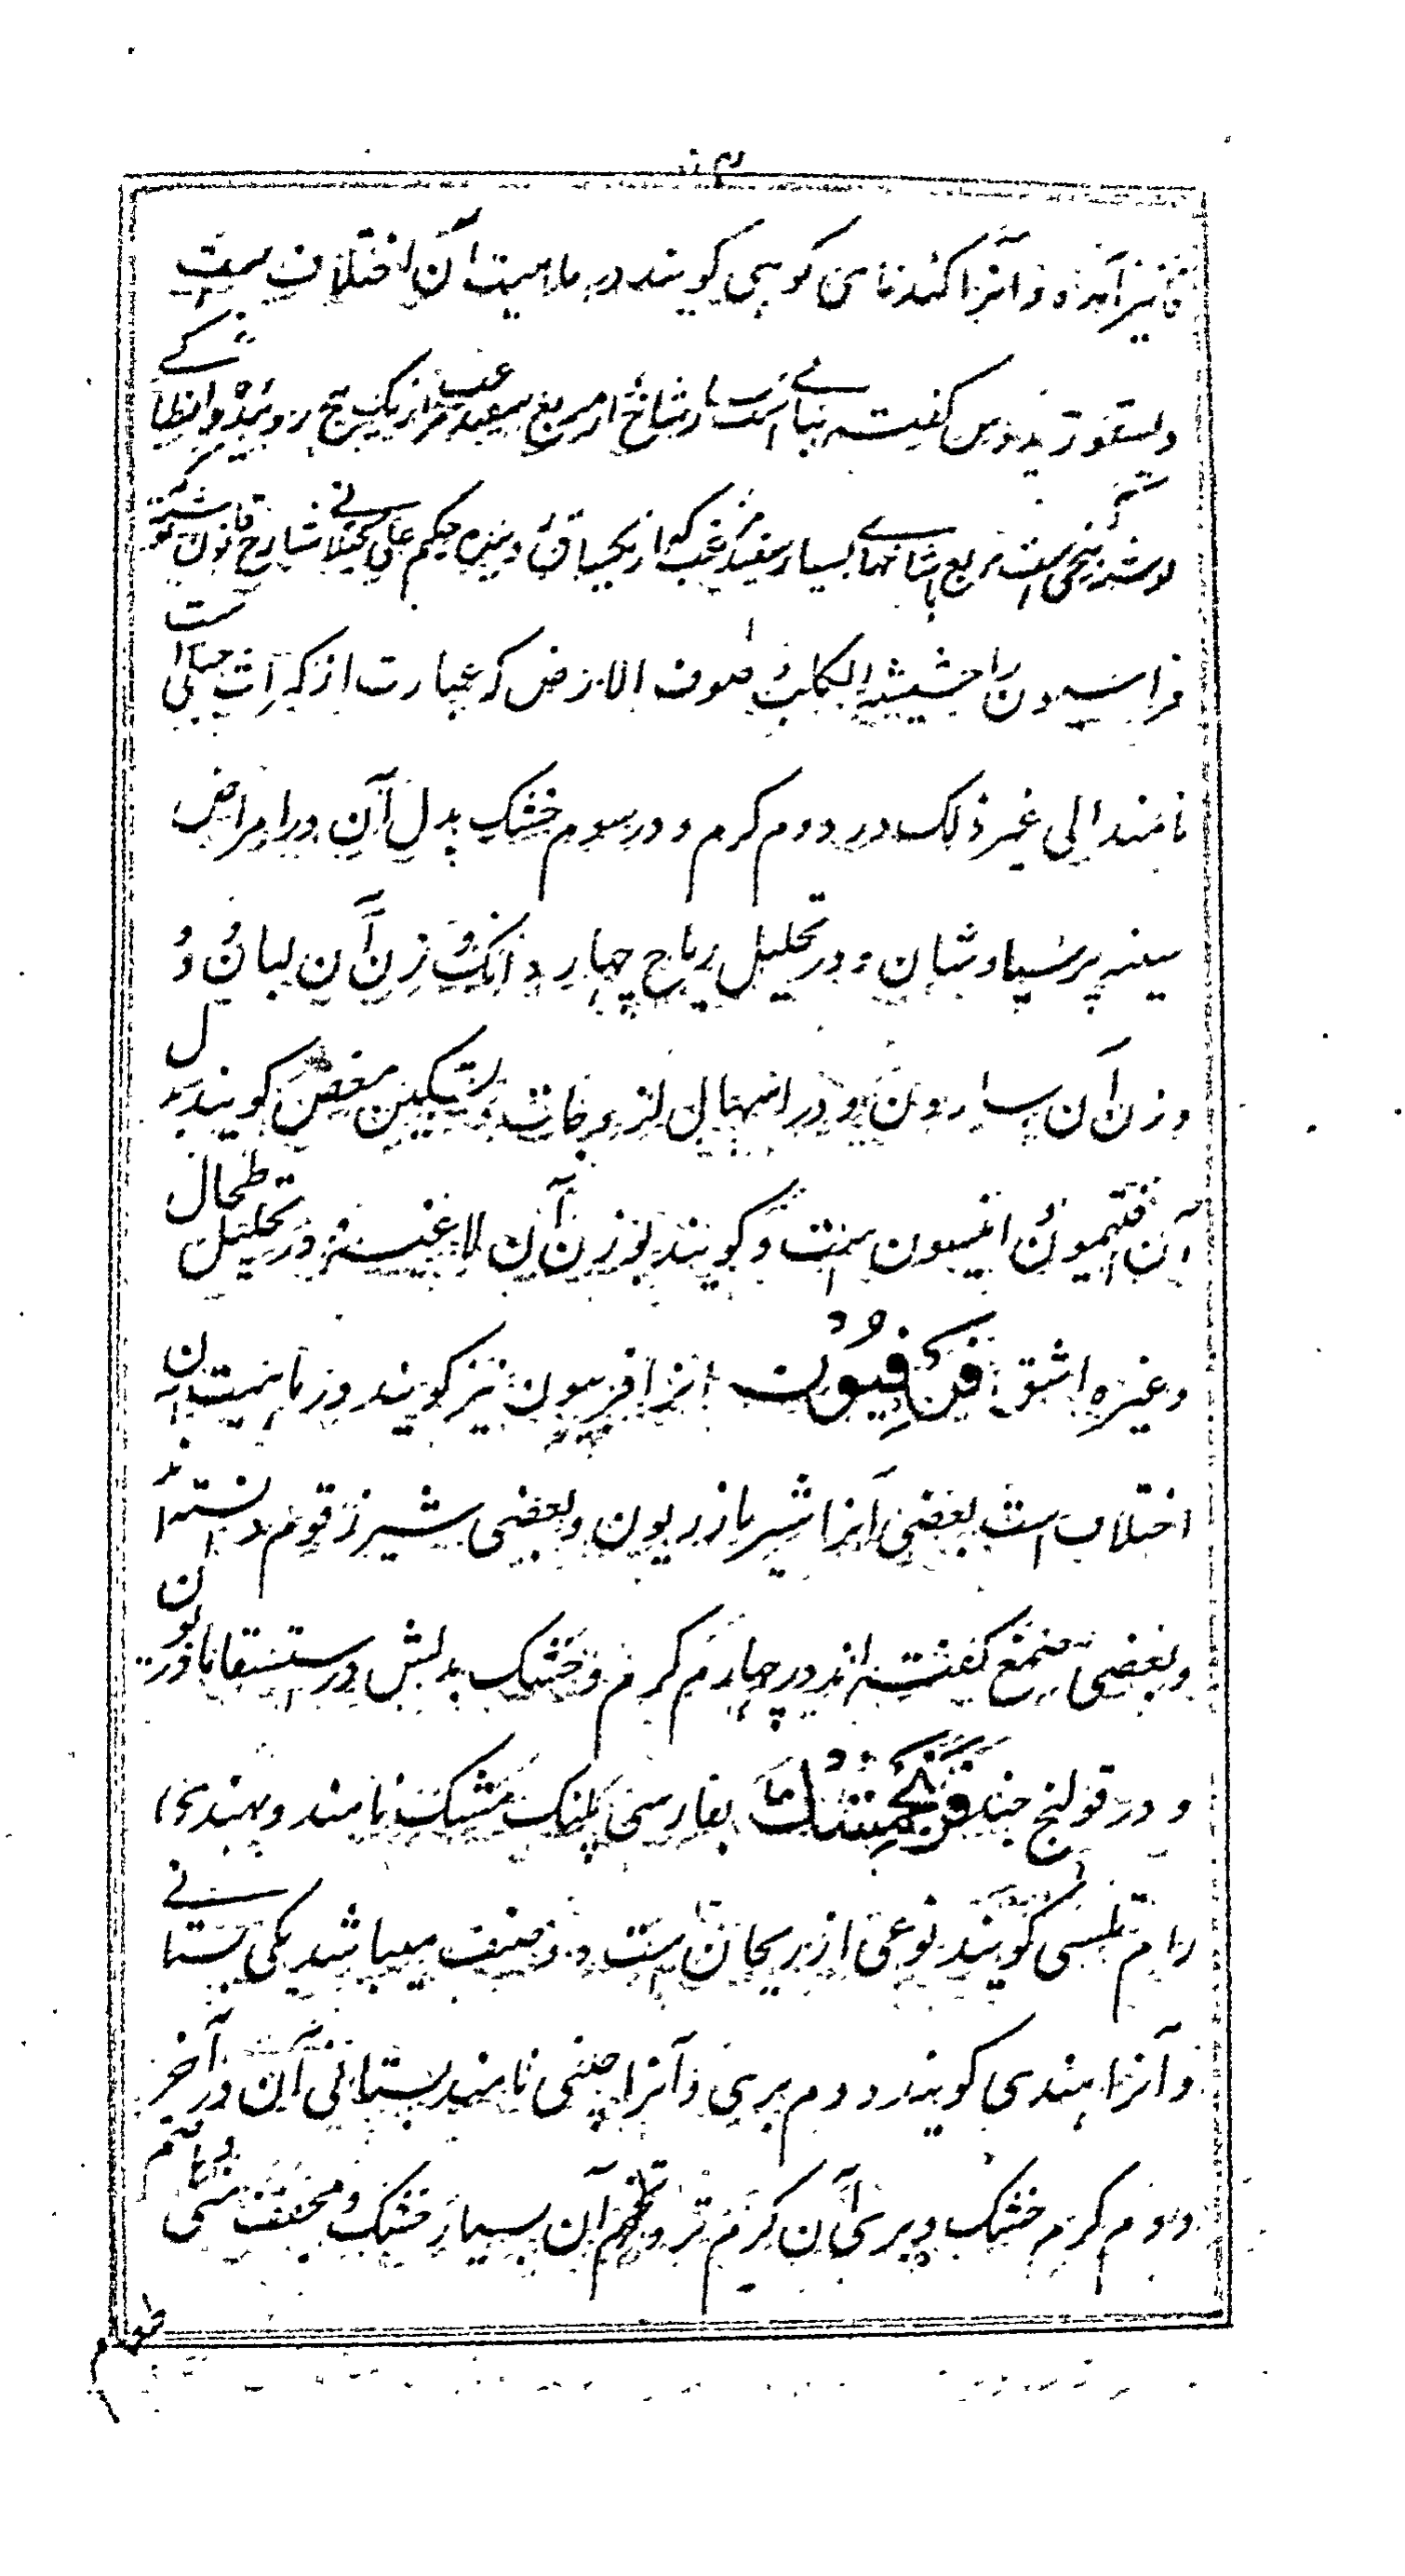 قا نیز آمده و آنرا کندنای کوهی کویند در ماهیت آن اختلاف ست
دیسقوریدوس کفته نباتی است بسیار شاخ از مربع سفید مزغب از یک بیخ روئیده و انطاکے
نوشته بیخی ست مربع باشاخهاے بسیار سفید مزغب که از یکساق وغیره حکیم علی کیلانی شارح قانون نوشته که
فراسیون را حشیشة الکلب و صوف الارض که عبارت از کراث جبلی است
نامند الی غیر ذلک در دوم کرم و در سوم خشک بدل آن در امراض
سینه پرسیاوشان و در تحلیل ریاح چهار دانک وزن آن لبان و دو
وزن آن اسارون و در اسهال لزوجات و تسکین مغص کویند بدل
آن افتیمون انیسون ست و کویند بوزن آن لاغیه و در تحلیل طحال
وغیره اشق فرفیون آنرا افربیون نیز کویند و در ماهیت آن
اختلاف است بعضی آنرا شیر مازریون و بعضی شیر زقوم دانسته اند
و بعضی صمغ کفته اند در چهارم کرم و خشک بدلش در استسقا مازریون
و در قولنج جند فرنجمشک بفارسی پلنک مشک نامند و بهندی
رام تلسی کویند نوعی از ریحان ست دو صنف میباشد یکی بستانی
و آنرا هندی کویند و دوم بری و آنرا چینی نامند بستانی آن در آخر
دوم کرم خشک و بری آن کرم تر و تخم آن بسیار خشک و مجفف منی